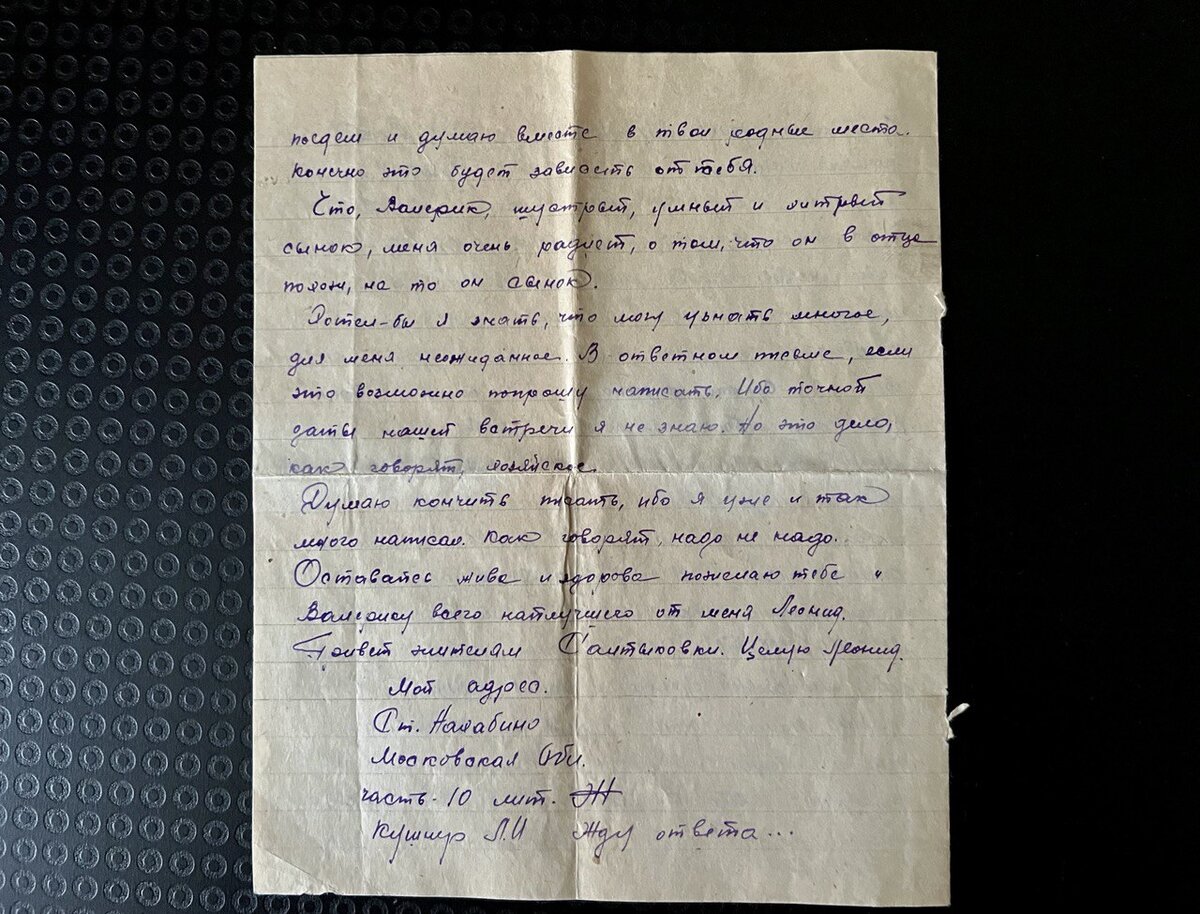 поедем и думаю вместе в твои родные места.
конечно это будет зависить от тебя.
Что, Валерик, шустрый, умный и хитрый
сынок, меня очень радует, о том, что он в отца
похож, на то он сынок.
Хотел-бы я знать, что могу узнать многое,
для меня неожиданное. В ответном письме, если
это возможно попрошу написать. Ибо точной
даты нашей встречи я не знаю. Но это дело,
как говорят, хозяйское.
Думаю кончить писать, ибо я уже и так
много написал. Как говорят, надо не надо.
Оставайсь жива и здорова пожелаю тебе и
Валерику всего наилучшего от меня Леонид.
Привет жителям Салтыковки. Целую Леонид.
Мой адрес.
Ст. Нахабино
Московская Обл.
часть-10 лит. Ж
Кушнир Л.И Жду ответа...